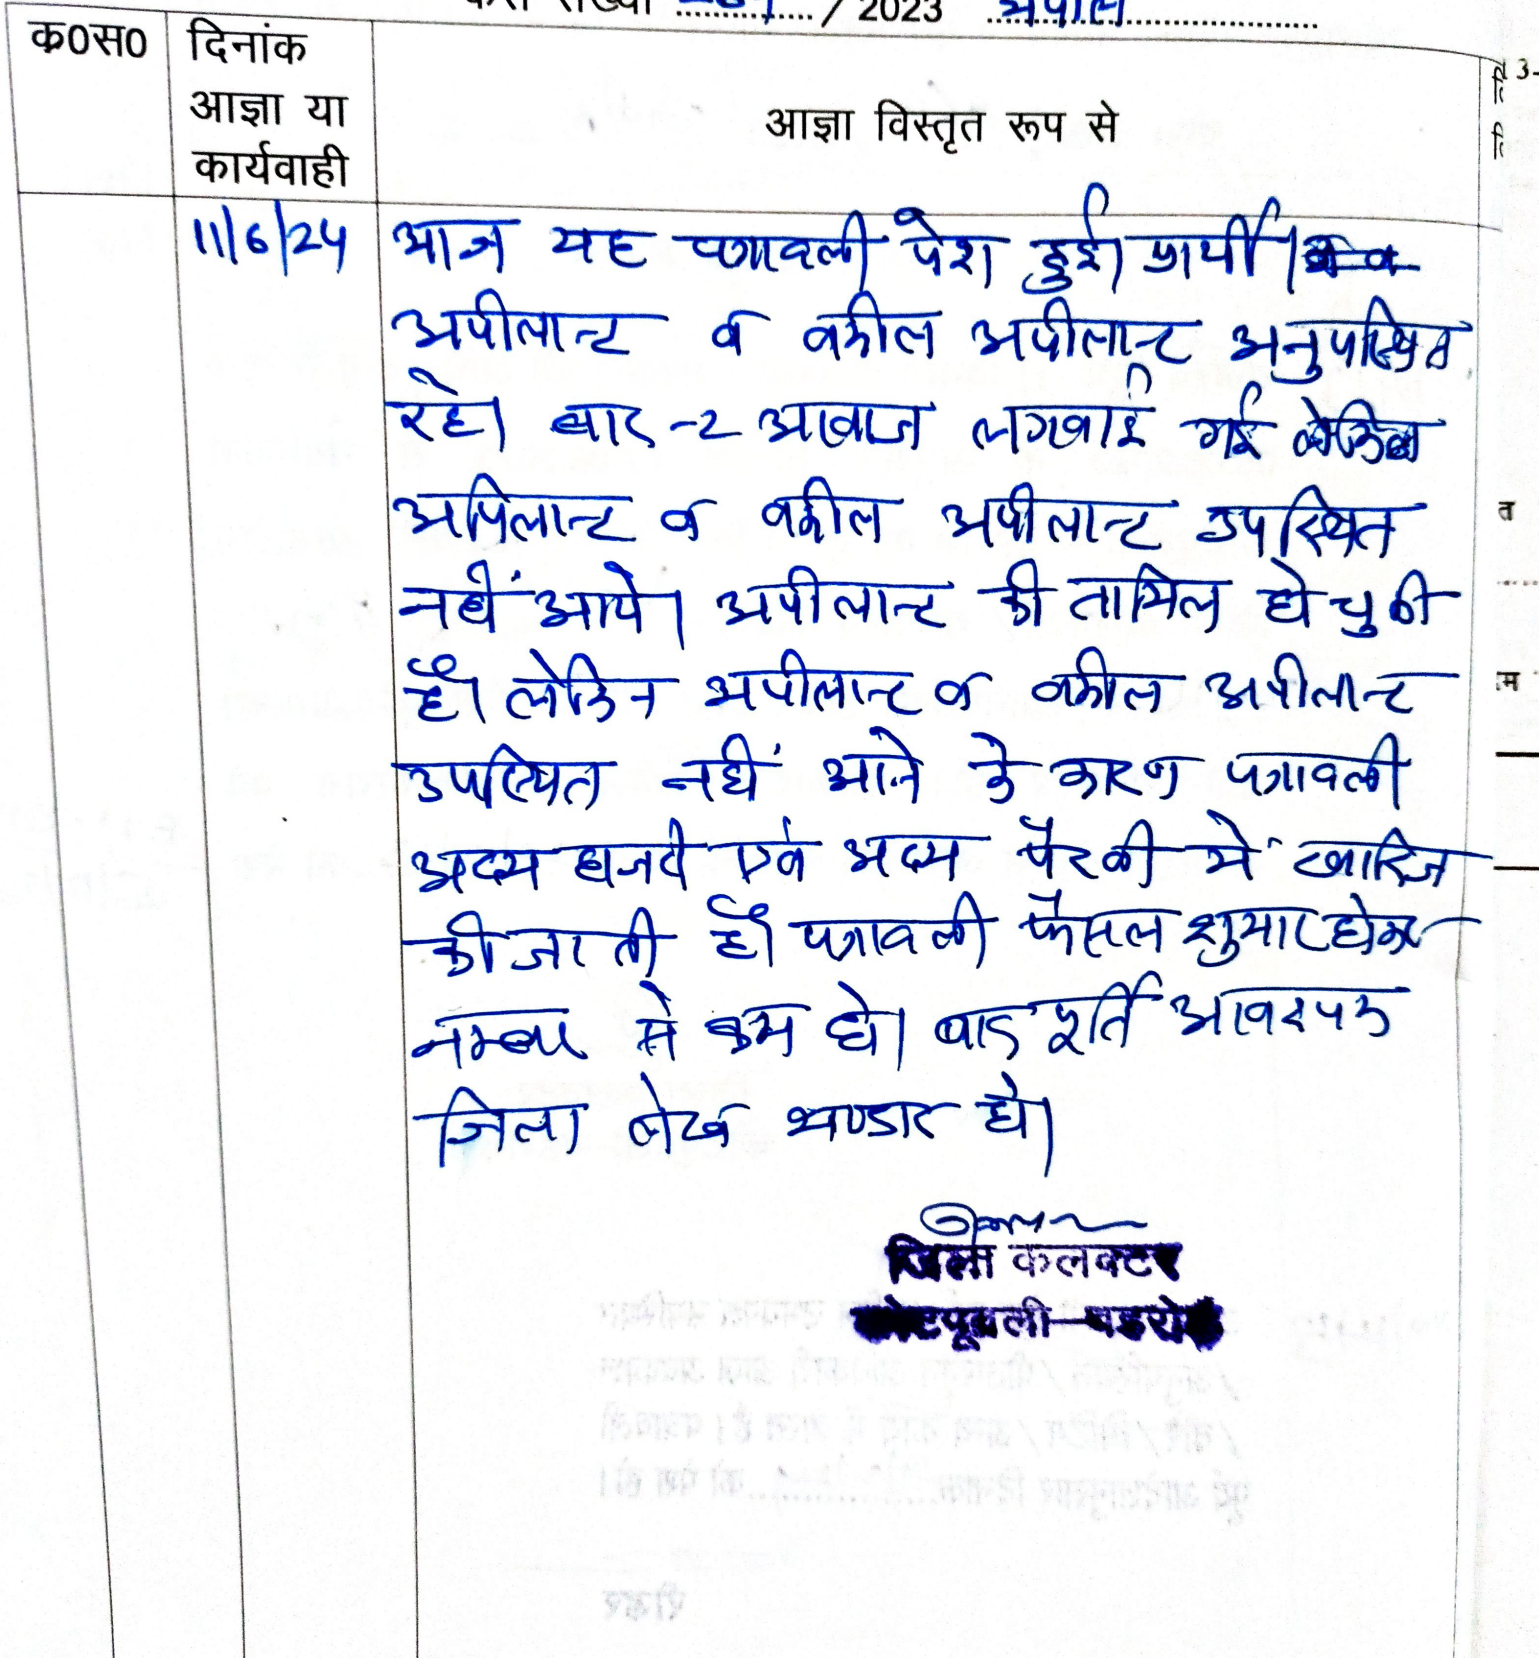 / 2023 अपील
क0स0
दिनांक
आज्ञा या
कार्यवाही
आज्ञा विस्तृत रूप से
11/6/24
आज यह पत्रावली पेश हुई। प्रार्थी।
अपीलान्ट व वकील अपीलान्ट अनुपस्थित
रहे। बार-2 आवाज लगवाई गई लेकिन
अपिलान्ट व वकील अपीलान्ट उपस्थित
नहीं आये। अपीलान्ट की तामिल हो चुकी
है। लेकिन अपीलान्ट व वकील अपीलान्ट
उपस्थित नहीं आने के कारण पत्रावली
अदम हाजरी एवं अदम पैरवी में खारिज
की जाती है। पत्रावली फैसल शुमार होकर
नम्बर से कम हो। बाद पूर्ति आवश्यक
जिला लेख भण्डार हो।
जिला कलक्टर
कोटपूतली-बहरोड